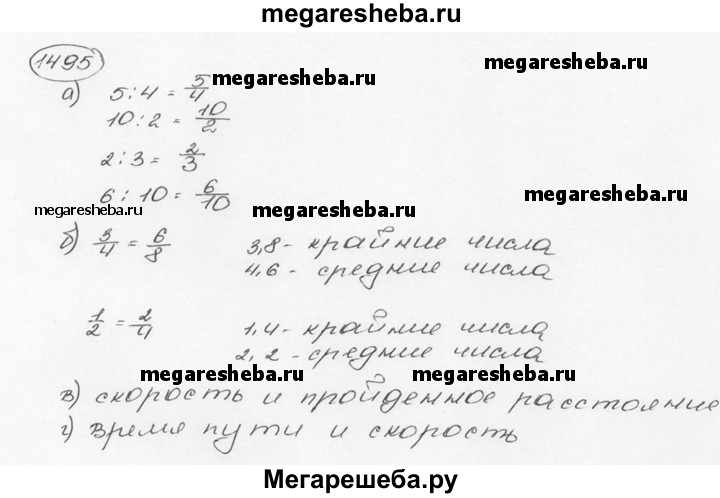 megaresheba.ru
1495
megaresheba.ru
а) 5:4 = 5/4
megaresheba.ru
10:2 = 10/2
2:3 = 2/3
6:10 = 6/10
megaresheba.ru
megaresheba.ru
б) 3/4 = 6/8 3,8 - крайние числа
4,6 - средние числа
1/2 = 2/4 1,4 - крайние числа
2,2 - средние числа
megaresheba.ru megaresheba.ru
в) скорость и пройденное расстояние
г) время пути и скорость
Мегарешеба.ру